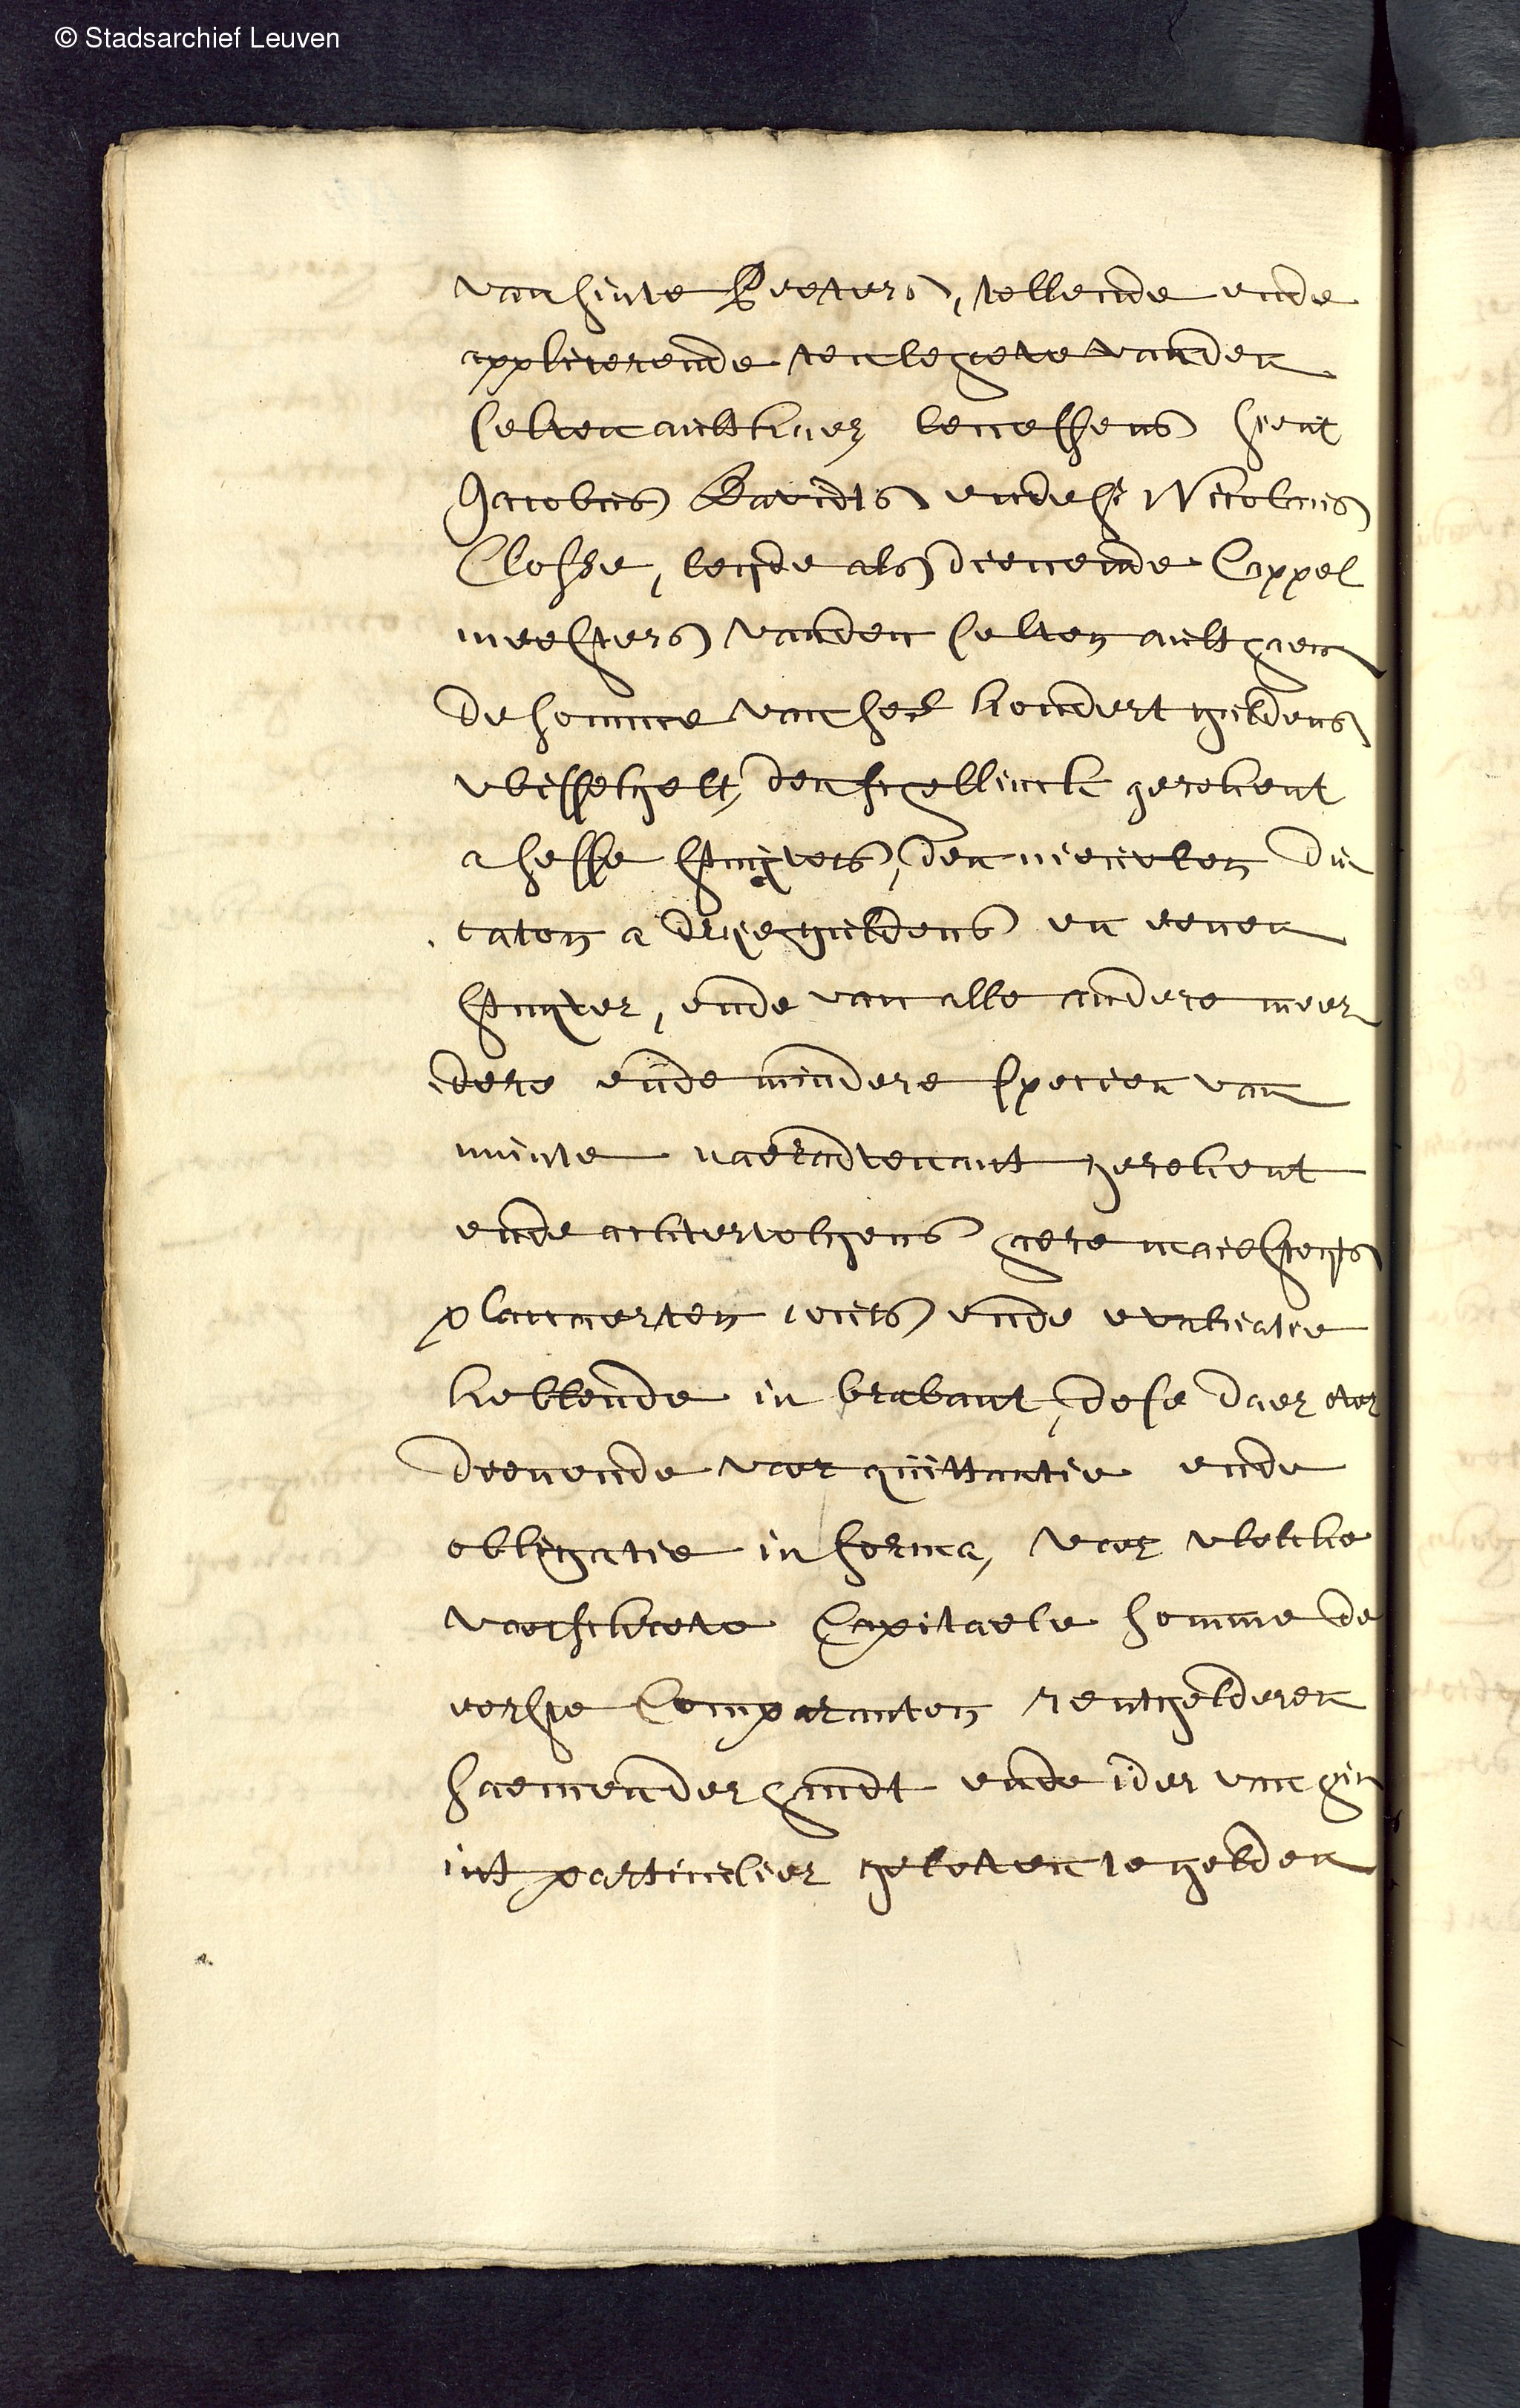 © Stadsarchief Leuven
van sinte Peeters, tellende ende
applicerende ten behoeve vanden
selven aultaer beneffens Sieur
Jacobus Davidts ende Sr Nicolaus
Closse, beyde als dienende Cappel
meesters vanden selven aultaer
de somme van ses hondert guldens
wisselgelt, den schellinck gerekent
a sesse stuyvers, den nieuwen du
caton a drye guldens en eenen
stuyver, ende van alle andere meer
dere ende mindere specien van
munte naer advenant gerekent
ende achtervolgens haere majesteyts
placcaerten cours ende evaluatie
hebbende in brabant, dese daer over
dienende voor quittantie ende
obligatie in forma, voor welcke
voorschreve Capitaele somme de
eerste Comparanten rentgelderen
saemenderhandt ende ider van hun
int particulier geloven te gelden